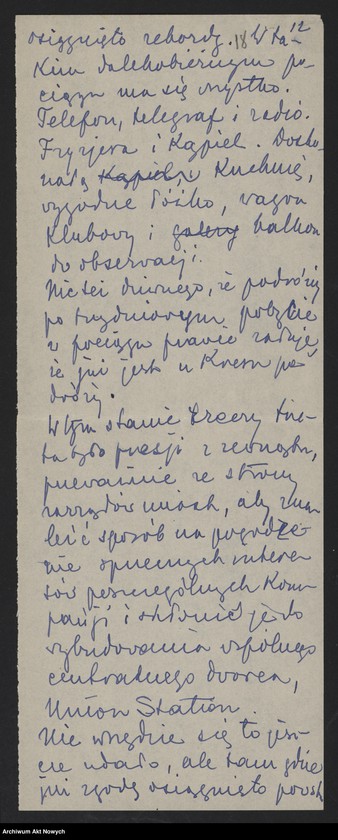 12
osiągnięto rekordy. 18 W ta-
kim dalekobieżnym po-
ciągu ma się wszystko.
Telefon, telegraf i radio.
Fryzjera i Kąpiel. Dosko-
nałą Kąpiel, i Kuchnię,
wygodne łóżko, wagon
Klubowy i galerię balkon
do obserwacji.
Nic też dziwnego, że podróżny
po trzydniowym pobycie
w pociągu prawie żałuje
że już jest u kresu po-
dróży.
W tym stanie rzeczy trze-
ba było presji z zewnątrz,
przeważnie ze strony
zarządów miast, aby zna-
leźć sposób na pogodze-
nie sprzecznych intere-
sów poszczególnych Kom-
panji i skłonić je do
wybudowania wspólnego
centralnego dworca,
Union Station.
Nie wszędzie się to jesz-
cze udało, ale tam gdzie
już zgodę osiągnięto
Archiwum Akt Nowych